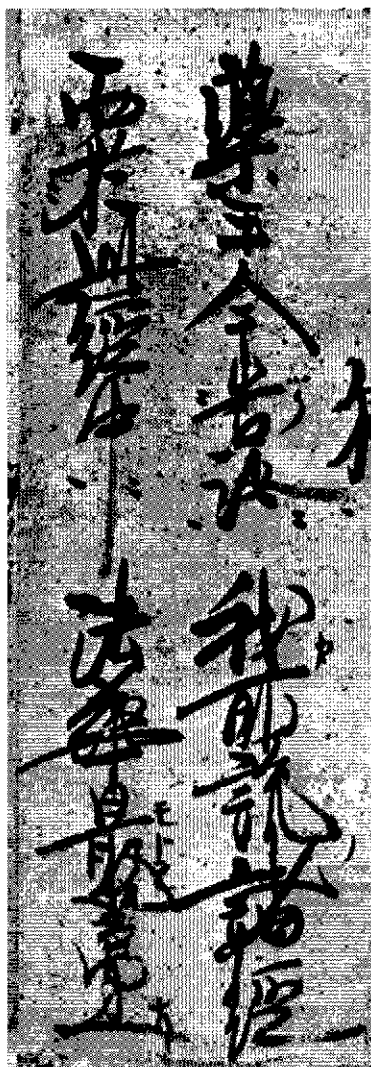 藥王今告汝 我所説諸經
而於此經中 法華最第一